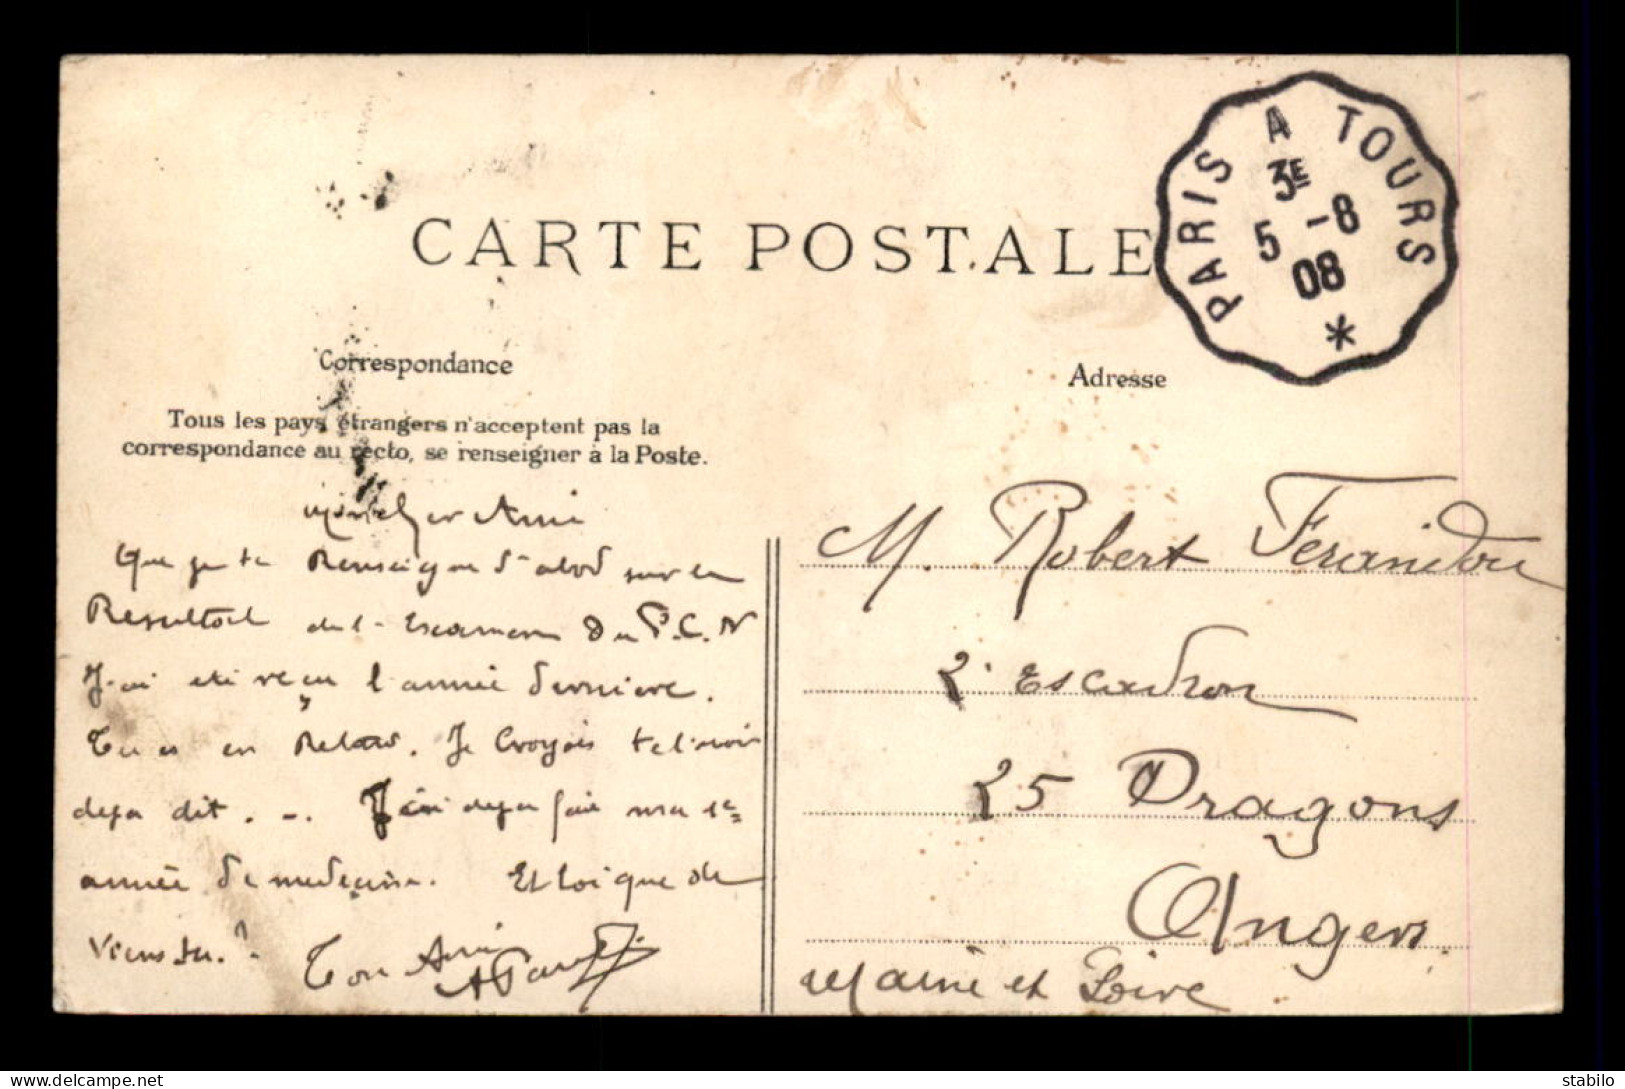 CARTE POSTALE
PARIS A TOURS
3E
5 -8
08
*
Correspondance
Adresse
Tous les pays étrangers n'acceptent pas la
correspondance au recto, se renseigner à la Poste.
Mon cher Ami
Que je te Renseigne d'abord sur le
Resultat de l'Examen du P.C.N
J'ai été reçu l'année dernière.
Tu es en Retard. Je Croyais te l'avoir
deja dit. - . J'ai deja fait ma 1e
année de medecine. Et toi que de
viens tu ?
Ton Ami
M. Robert
2e Escadron
25 Dragons
Angers
Maine et Loire
delcampe.net
stabilo